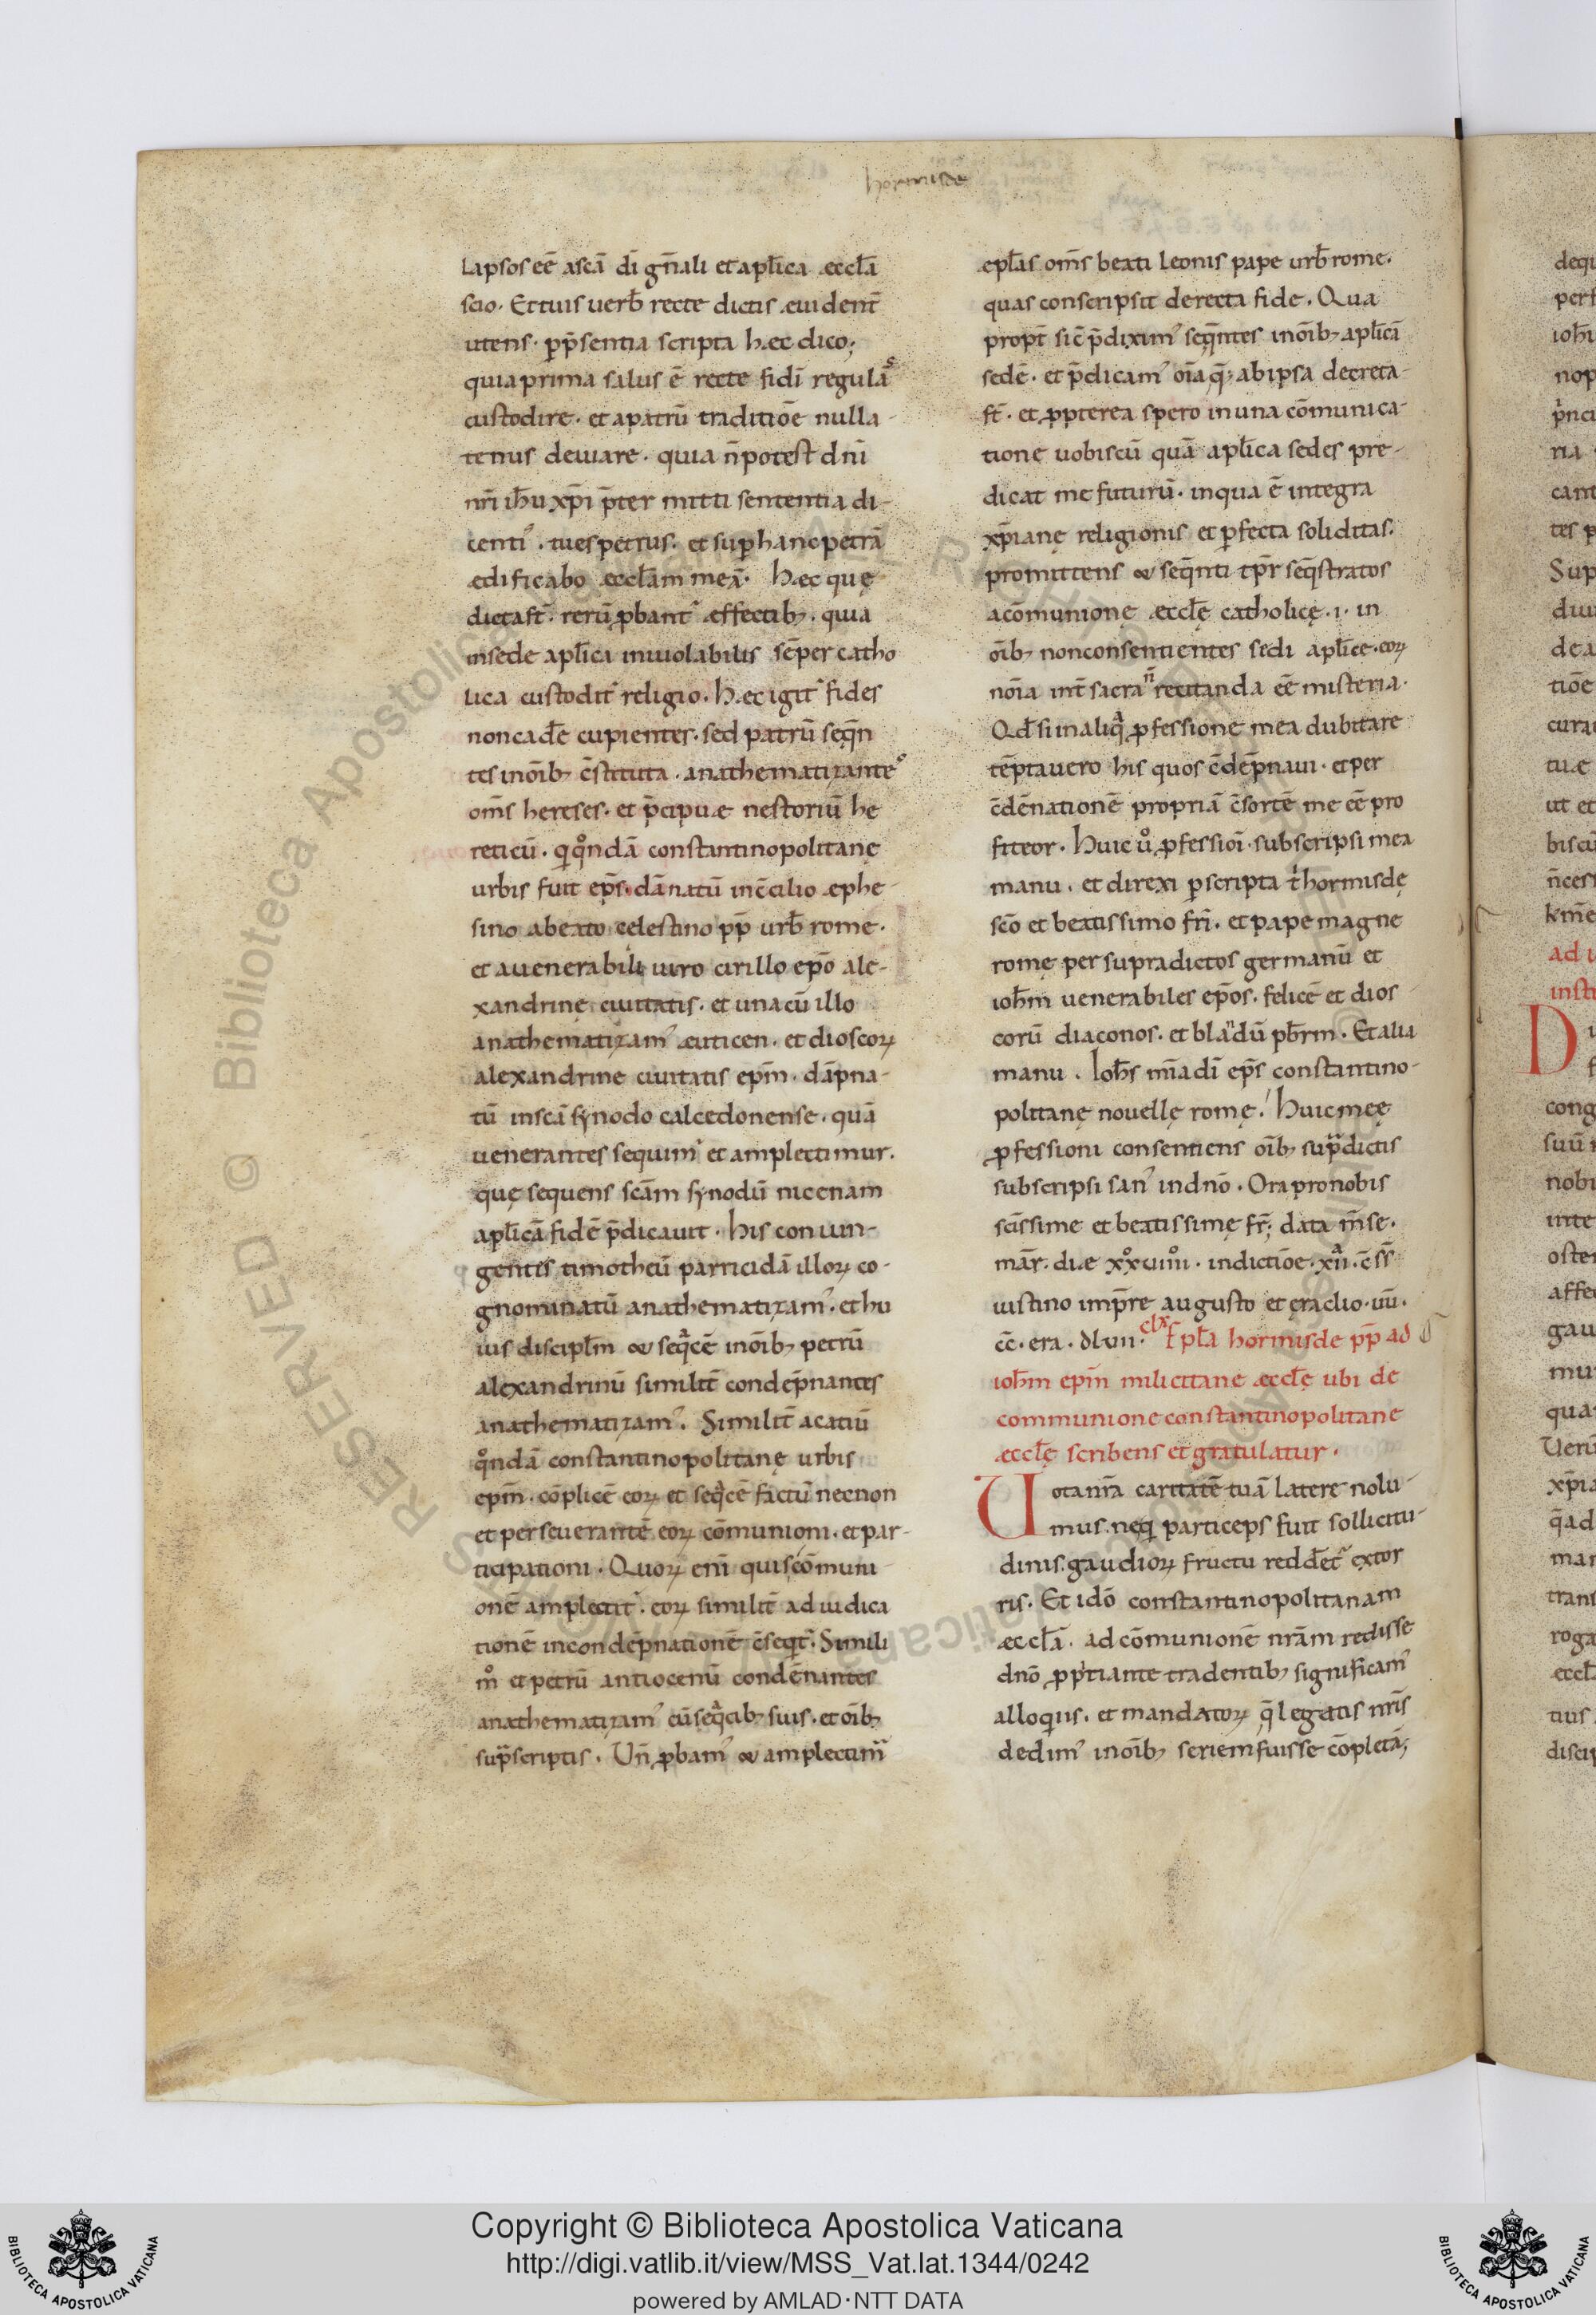 hormisde
Lapsos eē a scā dī gn̄ali et apl̄ica æccl̄a
scio. Et tuis uerb̄ recte dictis euident̄
utens. pp̄sentia scripta hæc dico;
quia prima salus ē recte fidī regulā
custodire. et a patrū traditiōe nulla
tenus deuiare. quia n̄ potest dnī
nr̄i ih̄u xp̄i p̄ter mitti sententia di-
centi᾽. tu es petrus. et sup hanc petrā
ædificabo æccl̄am meā. Hæc quę
dicta st̄. rerū ꝓbant᾽ æffectibꝫ. quia
in sede apl̄ica inuiolabilis sēper catho
lica custodit᾽ religio. Hæc igit᾽ fides
non cad̄e cupientes. sed patrū seqn̄
tes in oīb; c̄stituta. anathematizante᾽
om̄s hereses. et p̄cipuæ nestoriū he
reticū. qi qͦndā constantinopolitanę
urbis fuit ep̄s. dānatū in c̄cilio æphe-
sino a beato celestino pp̄ urb̄ rome.
et a uenerabili uiro cirillo ep̄o ale-
xandrinę ciuitatis. et una cū illo
anathematizam᾽ æuticen. et dioscoꝝ
alexandrine ciuitatis ep̄m. dāpna-
tū in scā synodo calcedonense. quā
uenerantes sequim᾽ et amplectimur.
quę sequens scām synodū nicenam
apl̄icā fidē p̄dicauit. His coniun-
gentes timotheū parricidā illoꝝ co-
gnominatū anathematizam᾽. et hu
ius discipl̄m & seqͣcē in oīb; petrū
alexandrinū similit̄ condēpnantes
anathematizam᾽. Similit̄ acatiū
qͦndā constantinopolitanę urbis
ep̄m. cōplicē eoꝝ et seqͣcē factū necnon
et perseuerantē eoꝝ cōmunioni. et par-
ticipationi. Quoꝝ enī quis cōmuni
onē amplectit᾽. eoꝝ similit̄ adiudica
tionē in condēpnationē c̄seqit᾽. Simili
mͦ et petrū antiocenū condēnantes
anathematizam᾽ cū seqͣcib; suis. et oīb;
supͣscriptis. Un̄ ꝓbam᾽ & amplectimͬ
æpl̄as om̄s beati Leonis pape urb̄ rome.
quas conscripsit de recta fide. Qua
propt̄ sic̄ p̄dixim᾽ seqn̄tes in oīb; apl̄icā
sedē. et p̄dicam᾽ oīa q̄; ab ipsa decreta
st̄. et ꝓpterea spero in una cōmunica-
tionę uobiscū quā apl̄ica sedes pre-
dicat me futurū. in qua ē integra
xp̄ianę religionis et pfecta soliditas.
promittens & seqn̄ti tp̄r seqs̄tratos
a cōmunionę æccl̄ę catholicę. i. in
oīb; non consentientes sedi apl̄ice. eoꝝ
noīa int̄ sacra n̄ recitanda eē misteria.
Qd̄ si in aliqͣ ꝓfessione mea dubitare
tēptauero his quos c̄dēpnaui. et per
c̄dēnationē propriā c̄sortē me eē pro
fiteor. Huic uͦ ꝓfessioī. subscripsi mea
manu. et direxi p scripta tͥ hormisdę
scō et beatissimo fr̄i. et pape magne
romę per supradictos germanū et
ioh̄m uenerabiles ep̄os. felicē et dios
corū diaconos. et blandū pb̄rm. Et alia
manu. Ioh̄s mīa dī ep̄s constantino-
politanę nouellę romę. Huic meę
ꝓfessioni consentiens oīb; supͣdictis
subscripsi san᾽ in dnō. Ora pro nobis
scīssime et beatissimę fr̄; data m̄se.
mār. diæ xͦxͦuiiiͦ. indictiōe. xiiͣ. c̄ss̄
iustino imp̄re augusto et ęraclio. uū.
cc̄. era. dlvii. clx Epl̄a hormisde pp̄ ad
ioh̄m ep̄m milicitane æccl̄ę ubi de
communione constantinopolitane
æccl̄ę scribens et gratulatur.
Uota nr̄a caritatē tuā latere nolu-
mus. neq particeps fuit sollicitu-
dinis. gaudioꝝ fructu redd̄et᾽ extor
ris. Et idō constantinopolitanam
æccl̄ā. ad cōmunionē nr̄am redisse
dnō ꝓptiante tradentib; significam᾽
alloqiis. et mandatoꝝ q̄ legatis nr̄is
dedim᾽ in oīb; seriem fuisse cōpletā;
Copyright © Biblioteca Apostolica Vaticana
http://digi.vatlib.it/view/MSS_Vat.lat.1344/0242
powered by AMLAD·NTT DATA
BIBLIOTECA APOSTOLICA VATICANA
BIBLIOTECA APOSTOLICA VATICANA